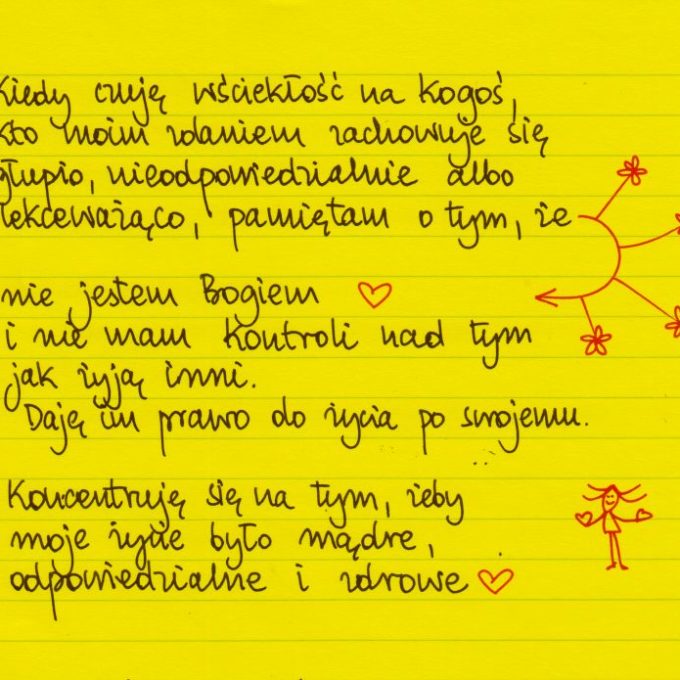 Kiedy czuję wściekłość na kogoś,
kto moim zdaniem zachowuje się
głupio, nieodpowiedzialnie albo
lekceważąco, pamiętam o tym, że
nie jestem Bogiem
i nie mam kontroli nad tym
jak żyją inni.
Daję im prawo do życia po swojemu.
Koncentruję się na tym, żeby
moje życie było mądre,
odpowiedzialne i zdrowe